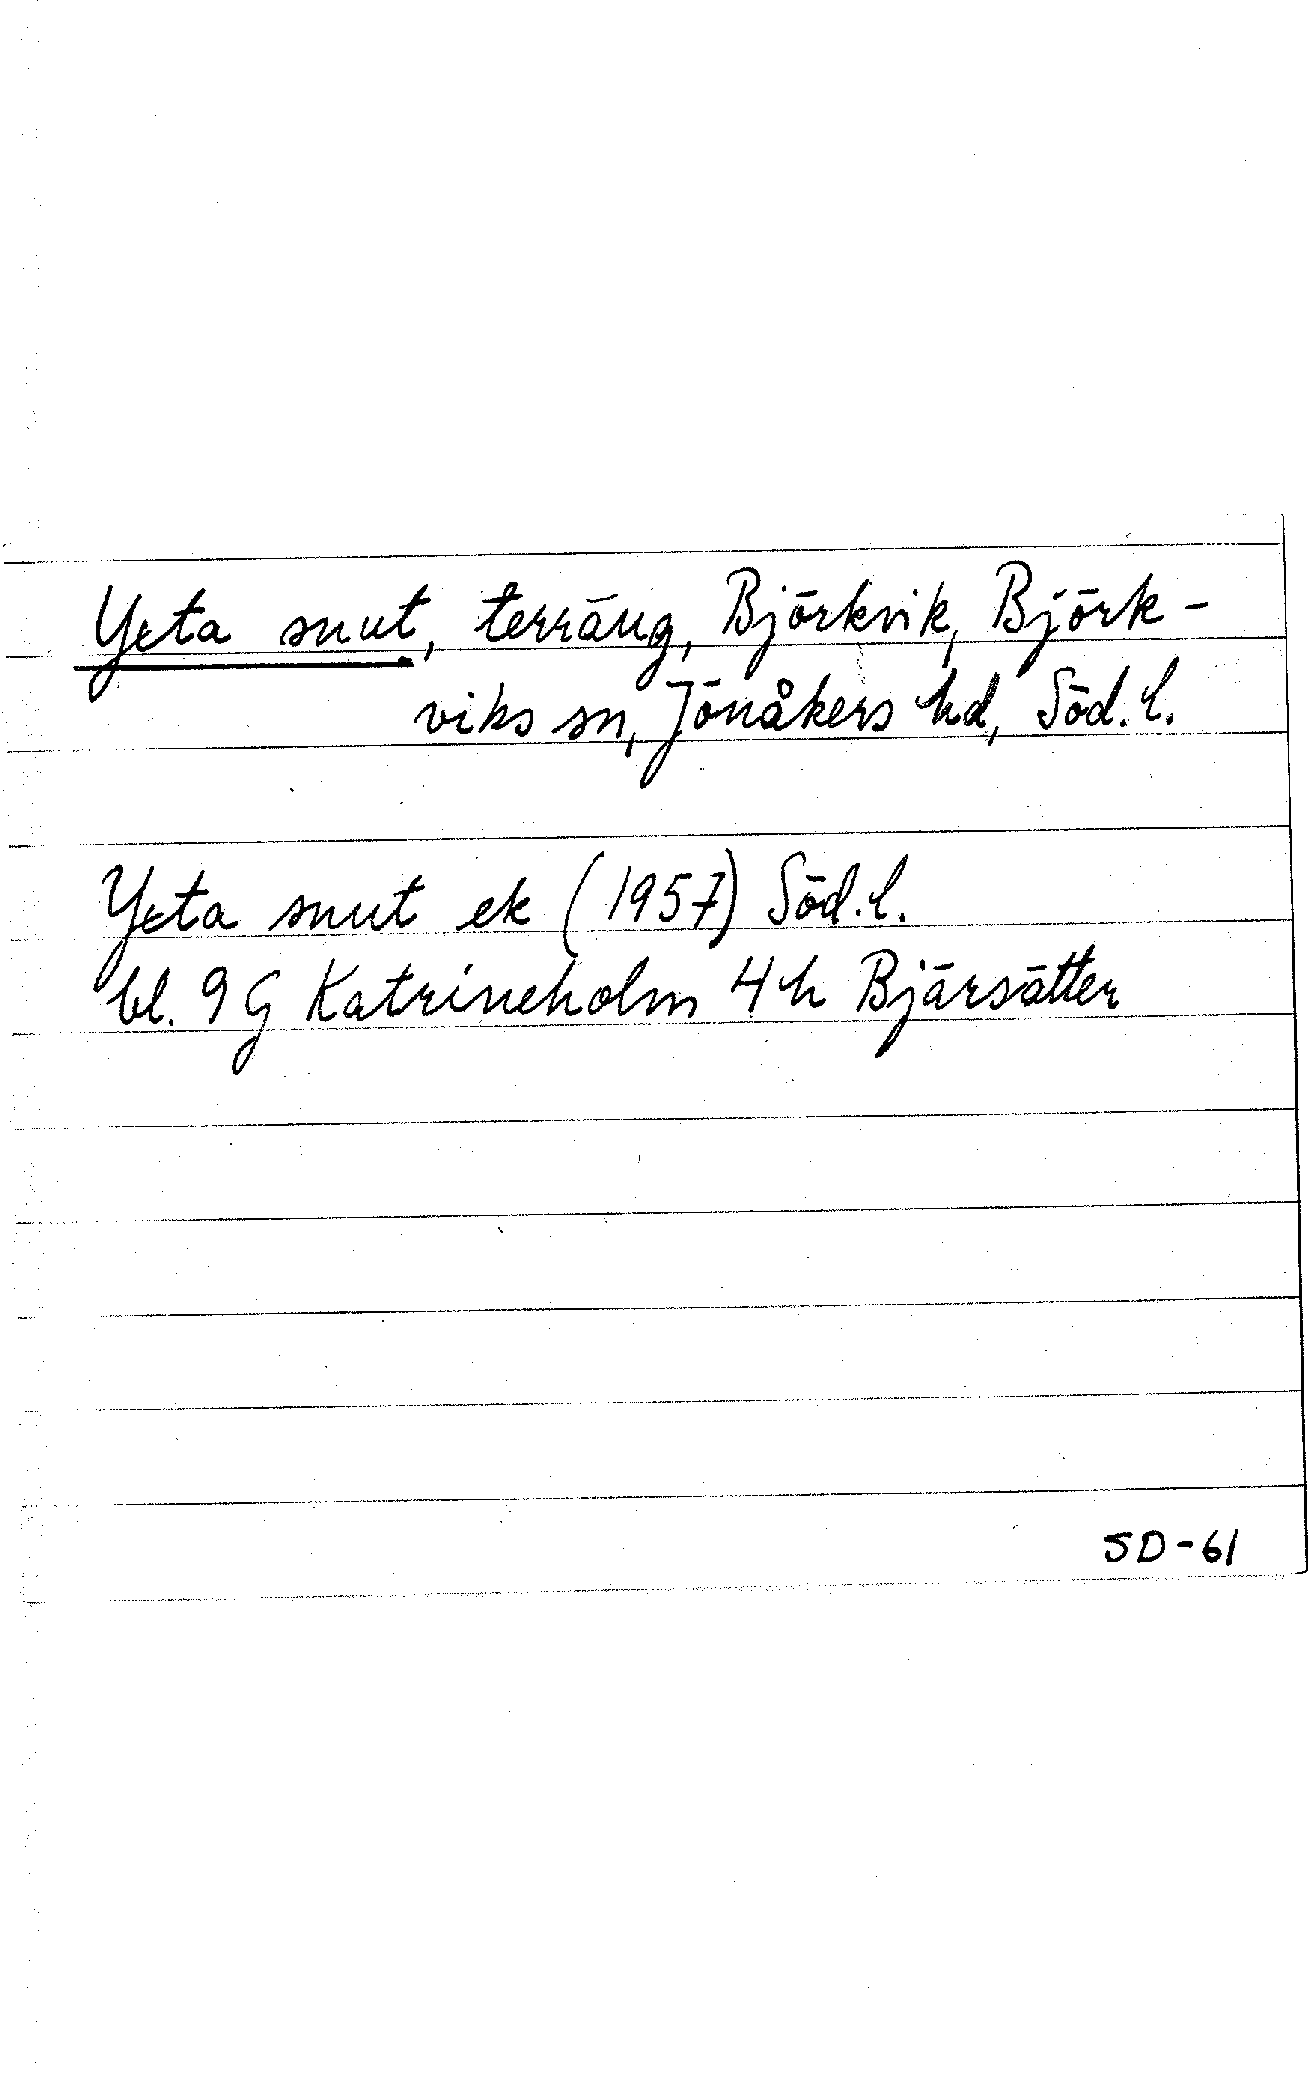 Yxta snut, terräng, Björkvik, Björk-
viks sn, Jönåkers hd, Söd. l.
Yxta snut ek (1957) Söd. l.
bl. 9 G Katrineholm 4 h Bjärsätter
SD-61